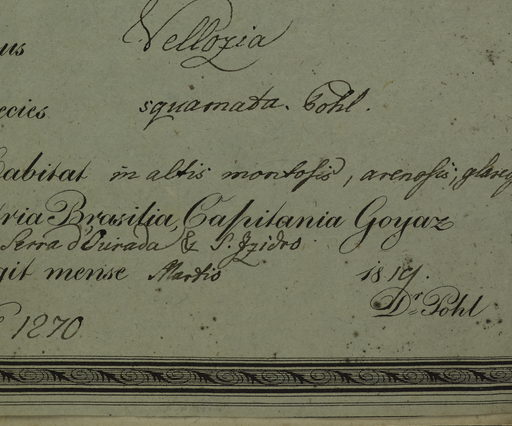 us Vellozia
ecies squamata. Pohl.
abitat in altis montosis, arenosis, glareo
ria Brasilia, Capitania Goyaz
Serra d'Ourada & S. Izidro
git mense Martio 1819.
Dr. Pohl
1270